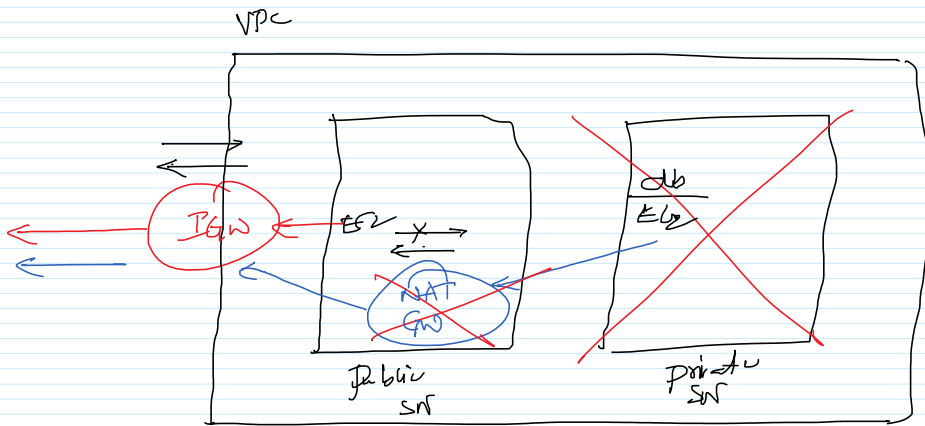 VPC
IGW
EC2
NAT
GW
db
EC2
Public
SN
Private
SN